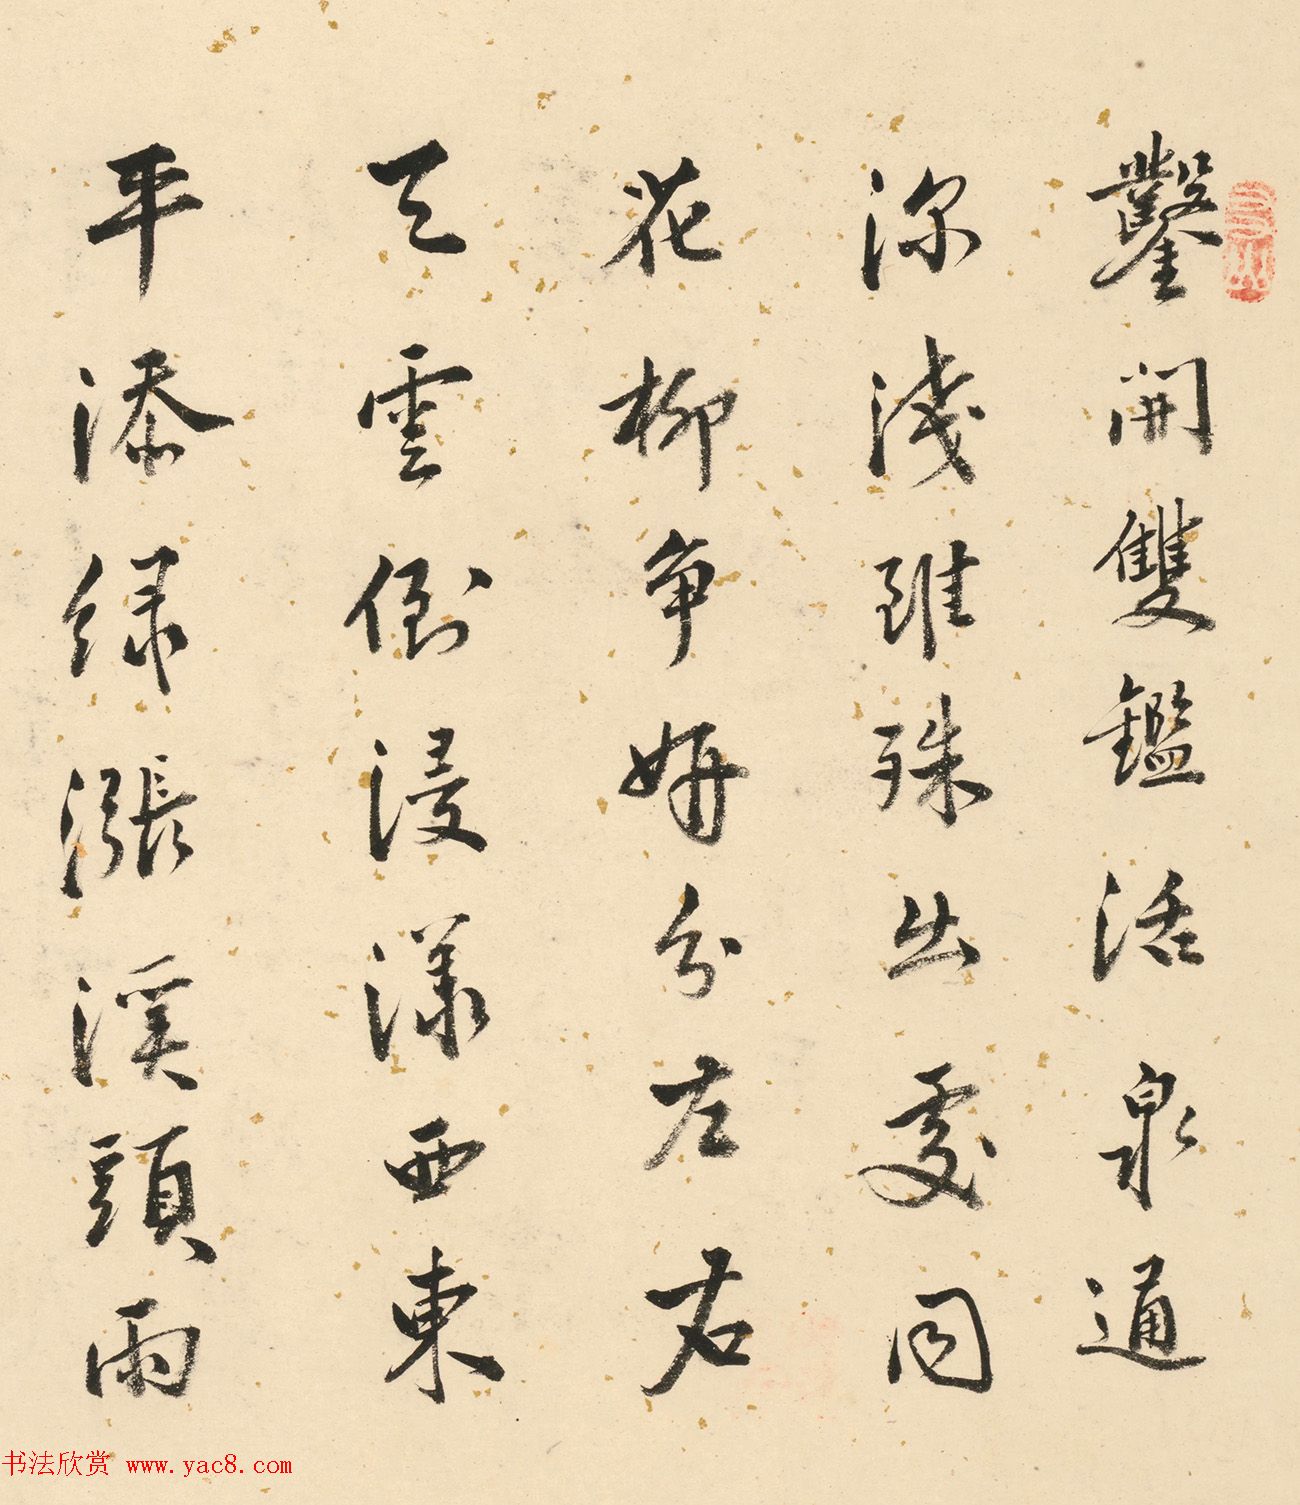 鑿開雙鑑活泉通
深淺雖殊出處同
花柳爭妍分左右
天雲倒浸漾西東
平添綠漲溪頭雨
书法欣赏 www.yac8.com